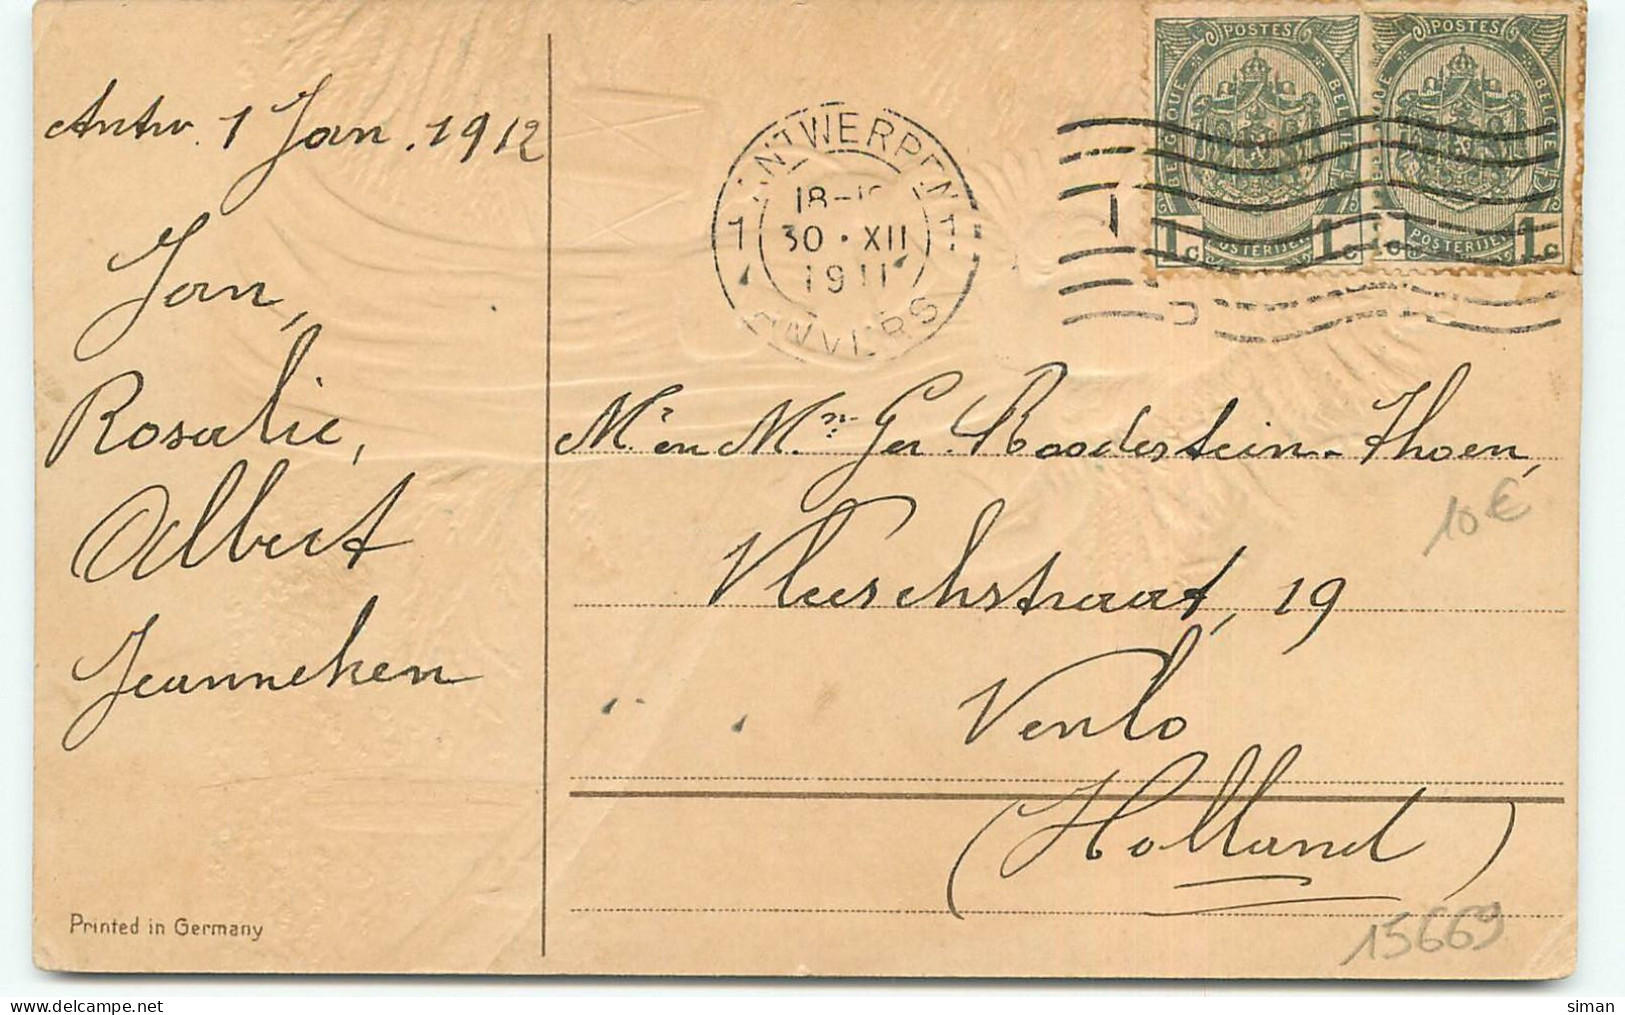 Antw. 1 Jan. 1912
Jan,
Rosalie,
Albert
Jeanneken
Printed in Germany
ANTWERPEN
1 1
18-1
30 · XII
1911
ANVERS
POSTES
BELGIQUE BELGIE
POSTERIJEN
1c 1c
POSTES
BELGIQUE BELGIE
POSTERIJEN
1c 1c
Mr en Mn Ger. Roodestein-Thoen,
10 €
Vleeschstraat, 19
Venlo
(Holland)
15669
siman